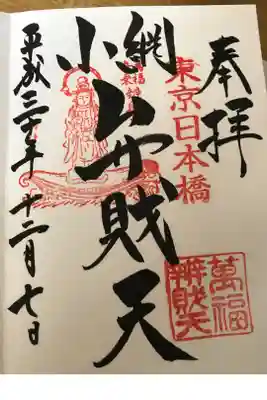 奉拝
東京日本橋
萬福
辨財天
小網
弁財天
平成三十年十二月七日